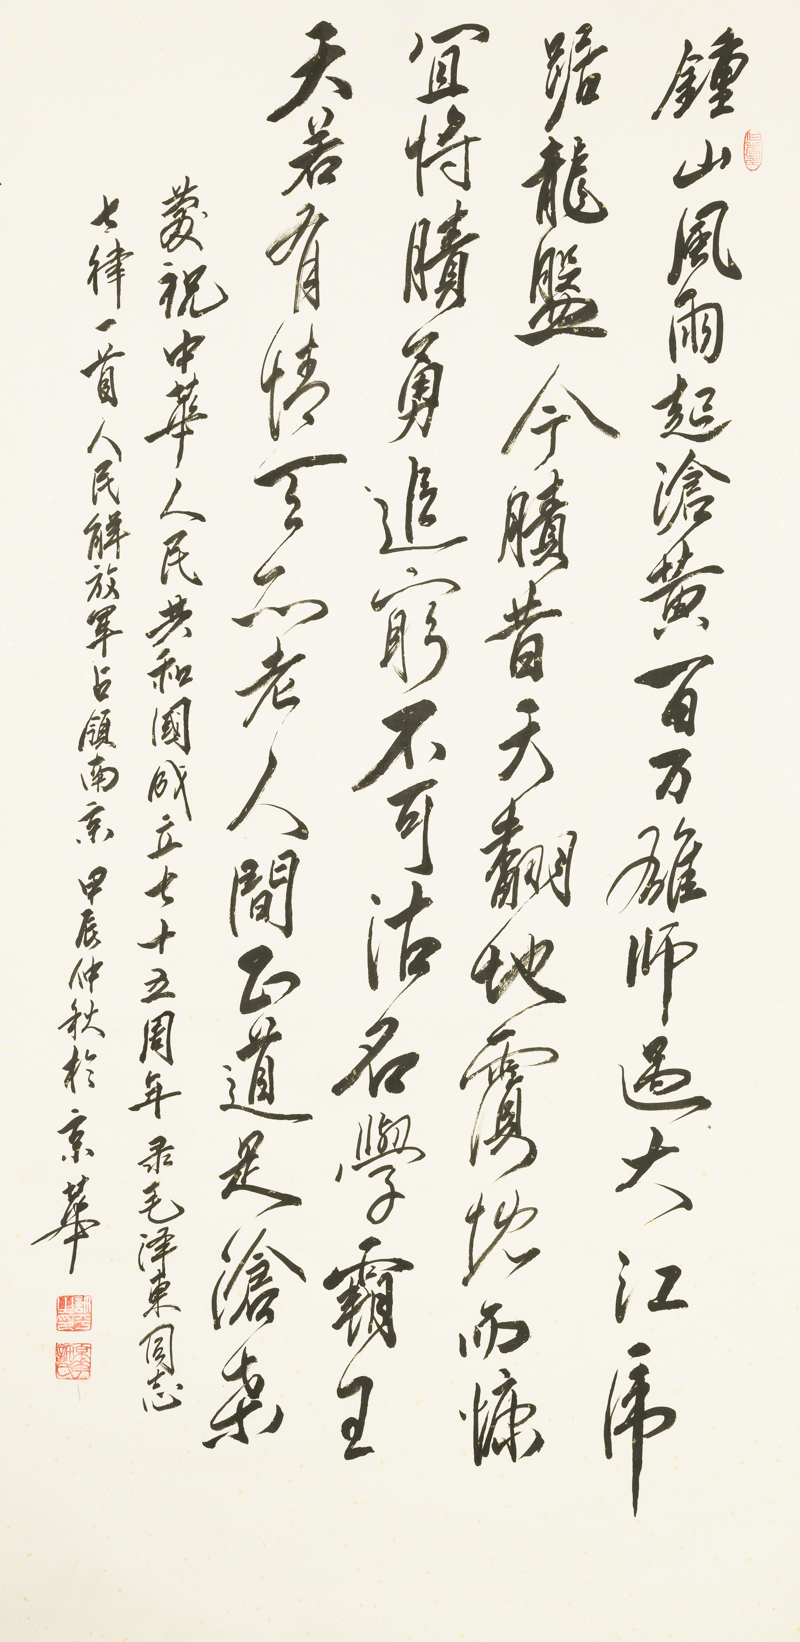 鍾山風雨起滄黄百万雄師過大江虎
踞龍盤今賸昔天翻地覆慨而慷
宜将賸勇追窮不可沽名學霸王
天若有情天亦老人間正道是滄桑
慶祝中華人民共和國成立七十五周年录毛泽東同志
七律一首人民解放军占領南京 甲辰仲秋於京華